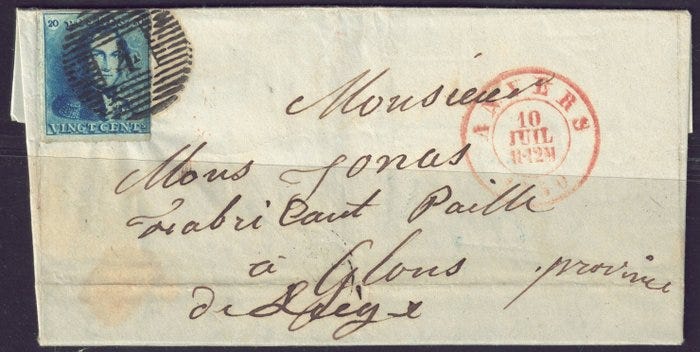 20
VINGT CENTS
ANVERS
10
JUIL
11-12M
Monsieur
Mons Jonas
Fabricant Paille
à Glons province
de Liége